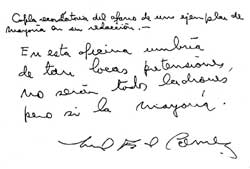 Copla exculatoria del afano de un ejemplar de
mayoría en su relación.—
En esta oficina umbría
de tan locas pretensiones,
no serán todos ladrones,
pero sí la mayoría.